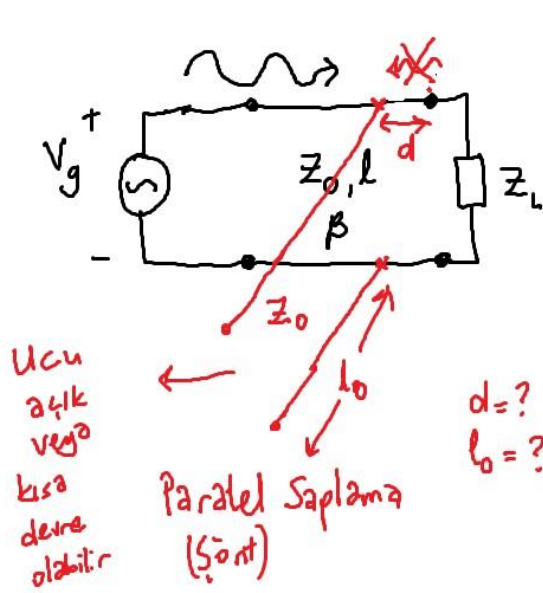 +
Vg
-
d
Z0, l
β
ZL
Z0
l0
Ucu
açık
veya
kısa
devre
olabilir
Paralel Saplama
(Şönt)
d=?
l0=?